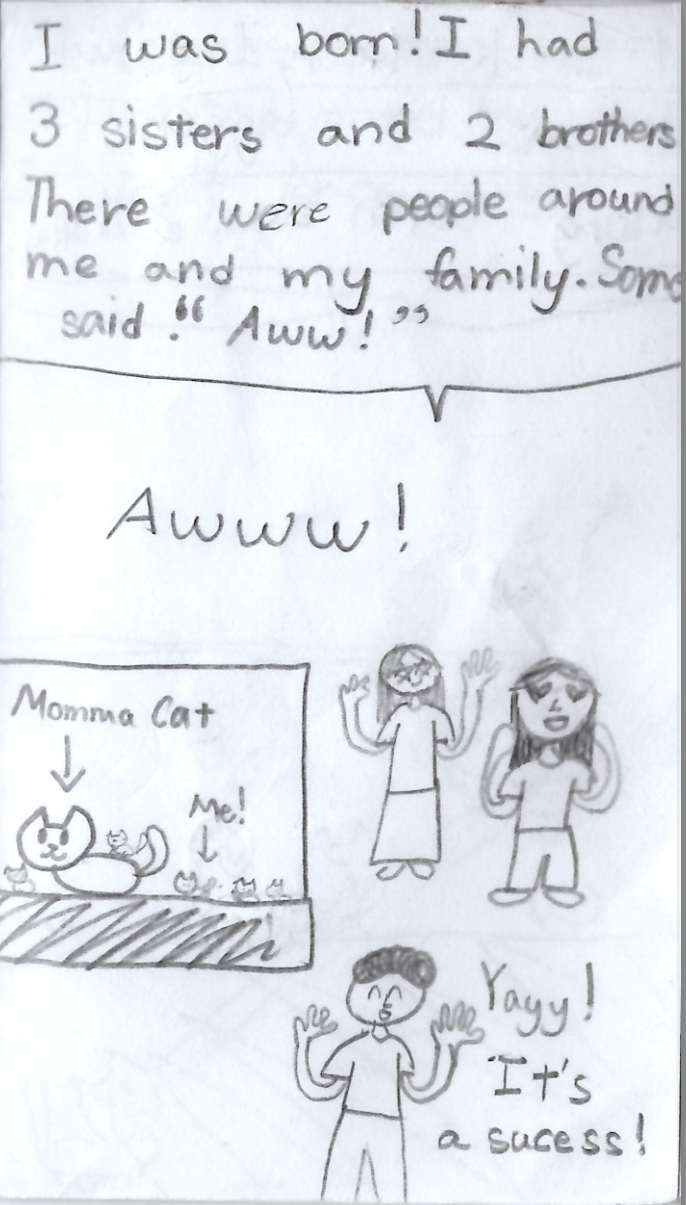 I was born! I had
3 sisters and 2 brothers
There were people around
me and my family. Some
said "Aww!"
Awww!
Momma Cat
Me!
Yayy!
It's
a sucess!